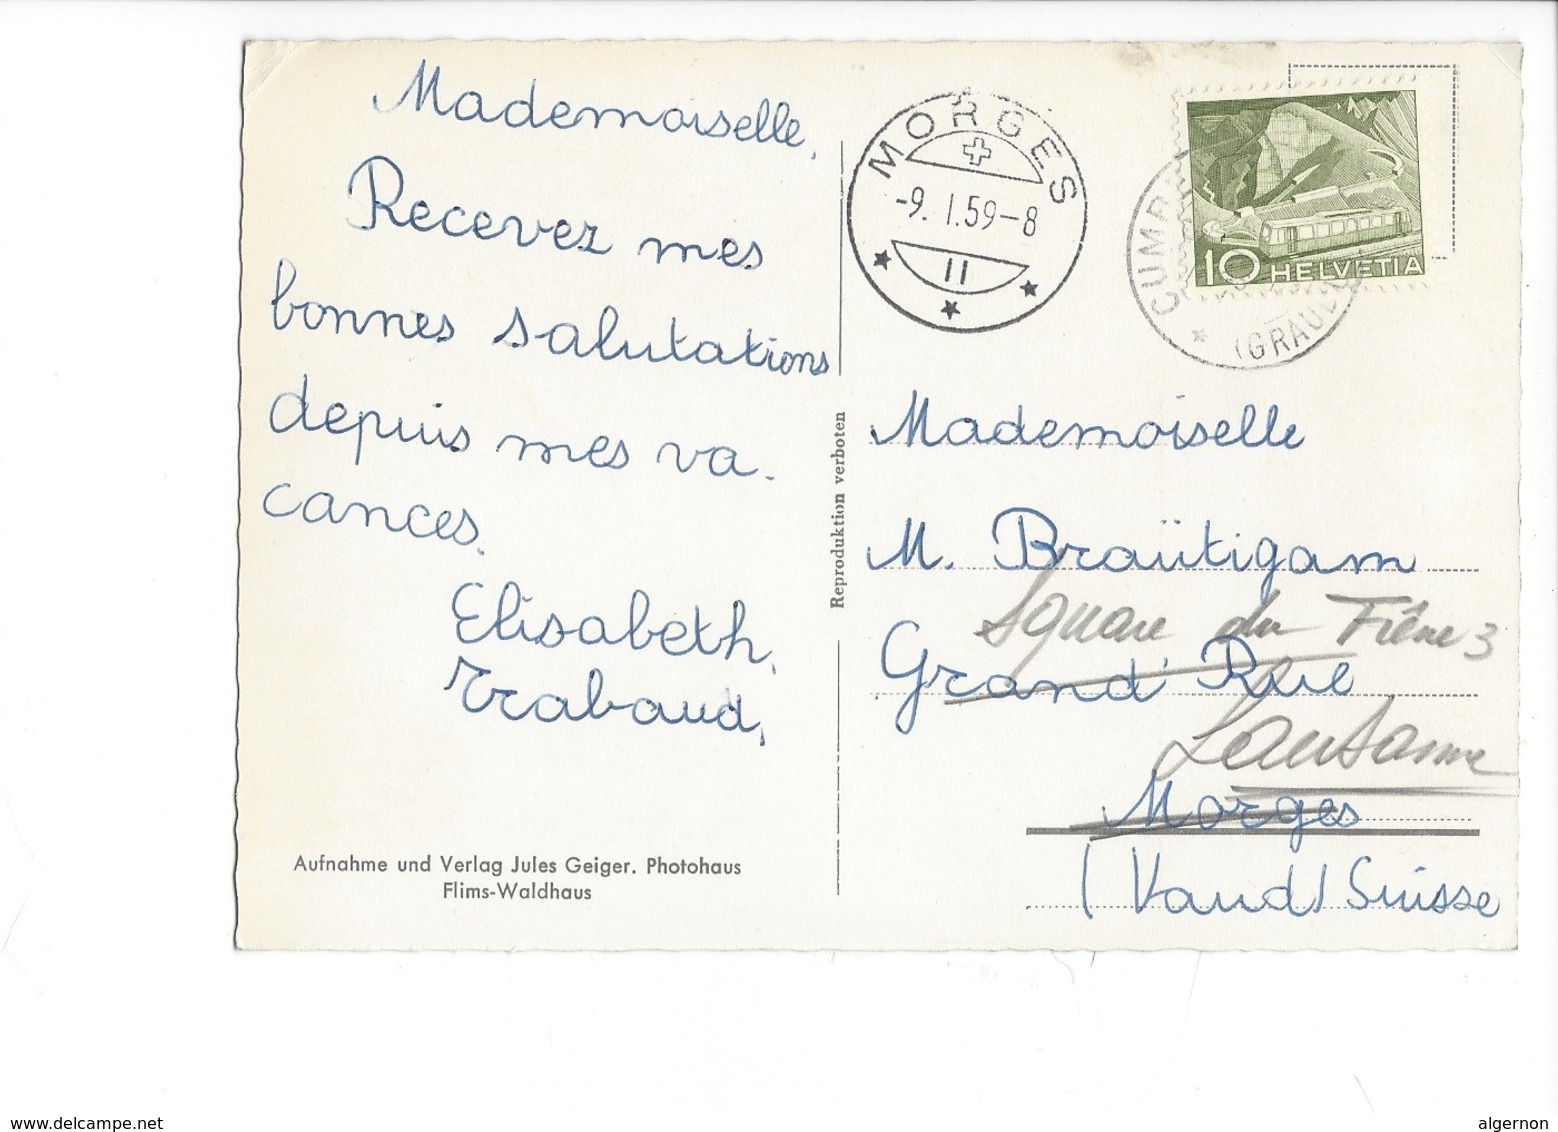 Mademoiselle,
Recevez mes
bonnes salutations
depuis mes va-
cances.
Elisabeth,
Trabaud,
Aufnahme und Verlag Jules Geiger. Photohaus
Flims-Waldhaus
Reproduktion verboten
MORGES
-9. I.59-8
II
10 HELVETIA
(GRAUB
Mademoiselle
M. Braütigam
Square du Frêne 3
Grand' Rue
Lausanne
Morges
(Vaud) Suisse
www.delcampe.net
algernon